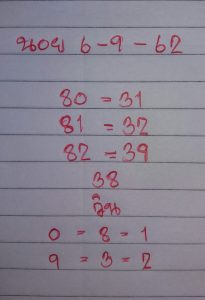 นอย 6-9-62
80 = 31
81 = 32
82 = 39
38
วิน
0 = 8 = 1
9 = 3 = 2